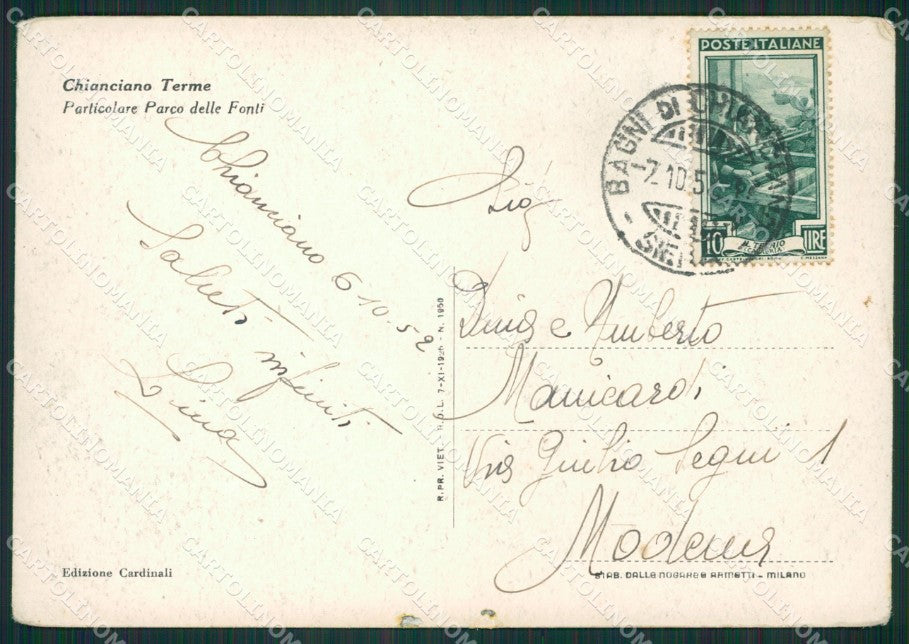 Chianciano Terme
Particolare Parco delle Fonti
Chianciano 6 10. 52
Saluti infiniti
Lina
R. PR. VIET. 7-XI-1925 - N. 1950
POSTE ITALIANE
10 LIRE
BAGNI DI
-7.10.5
Dina e Umberto
Manicardi
Via Giulio Segni 1
Modena
Edizione Cardinali
STAB. DALLE NOGARE E ARMETTI - MILANO
CARTOLINOMANIA